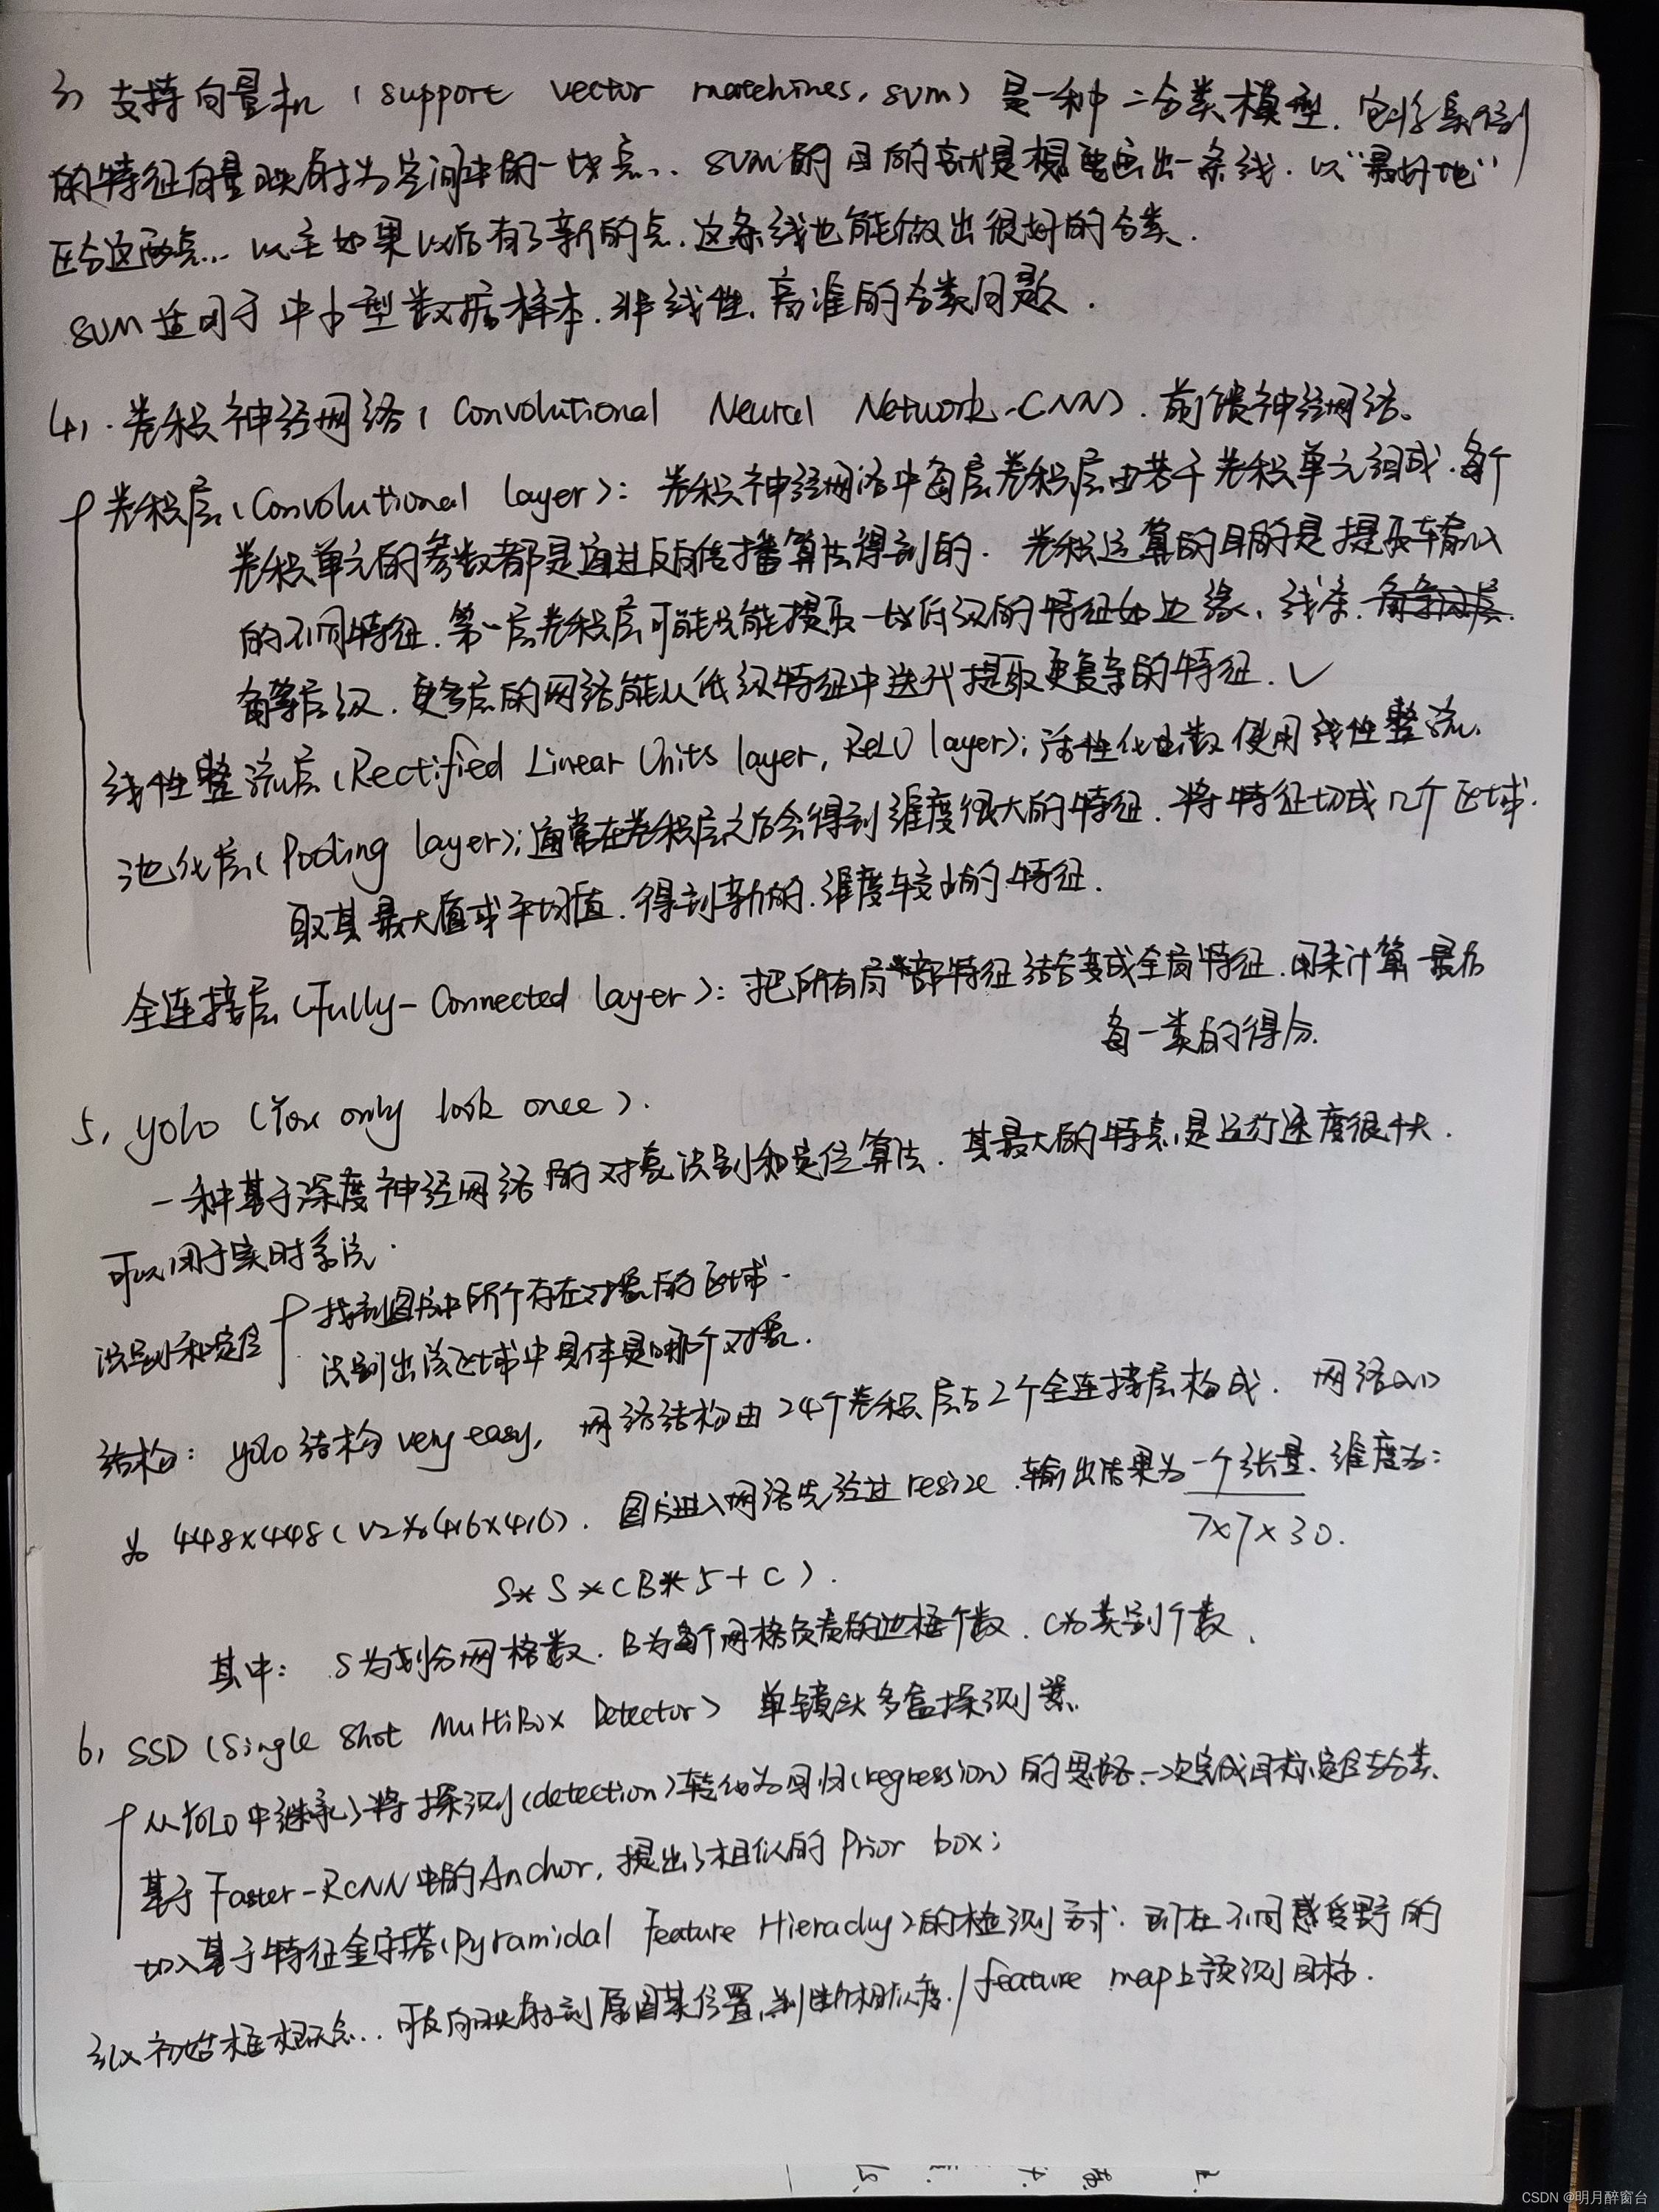 3) 支持向量机 (support vector matchines, svm) 是一种二分类模型. 它将实例
的特征向量映射为空间中的一些点.. SVM的目的就是想要画出一条线. 以“最好地”
区分这两点... 以至如果以后有了新的点. 这条线也能做出很好的分类.
SVM适用于中小型数据样本. 非线性. 高准的分类问题.
4) . 卷积神经网络 ( Convolutional Neural Network - CNN). 前馈神经网络。
卷积层 (Convolutional layer): 卷积神经网络中每层卷积层由若干卷积单元组成. 每个
卷积单元的参数都是通过反向传播算法得到的. 卷积运算的目的是提取输入
的不同特征. 第一层卷积层可能只能提取一些低级的特征如边缘、线条.
角等层级. 更多层的网络能从低级特征中迭代提取更复杂的特征. ✓
线性整流层 (Rectified Linear Units layer, ReLU layer): 活性化函数使用线性整流.
池化层 (Pooling layer): 通常在卷积层之后会得到维度很大的特征. 将特征切成几个区域.
取其最大值或平均值. 得到新的. 维度较小的特征.
全连接层 (Fully-Connected layer): 把所有局部特征结合变成全局特征. 用来计算最后
每一类的得分.
5, yolo (You only look once).
一种基于深度神经网络的对象识别和定位算法. 其最大的特点是运行速度很快.
可以用于实时系统.
识别和定位 找到图片中所个存在对象的区域.
识别出该区域中具体是哪个对象.
结构: yolo结构very easy, 网络结构由24个卷积层与2个全连接层构成. 网络入口
为 448×448 ( V2为416×416). 图片进入网络先经过 resize. 输出结果为一个张量. 维度为:
7×7×30.
S* S *(B* 5+ C).
其中: S为划分网格数. B为每个网格负责的边框个数. C为类别个数.
6, SSD (Single Shot MultiBox Detector) 单镜头多盒探测器.
从YOLO中继承了将探测(detection)转化为回归(regression)的思路. 一次完成目标定位与分类.
基于 Faster-RCNN中的Anchor, 提出了相似的 Prior box;
加入基于特征金字塔(Pyramidal Feature Hierachy)的检测方式. 即在不同感受野的
feature map上预测目标.
引入初始框概念... 可反向映射到原图某位置.
CSDN @明月醉窗台